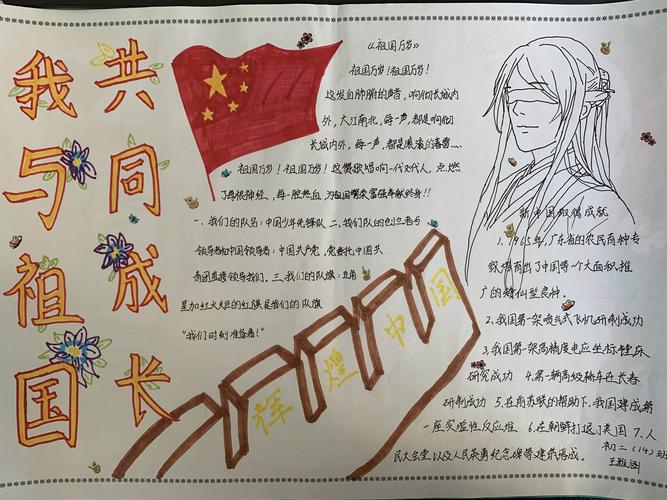 我与祖国
共同成长
《祖国万岁》
祖国万岁!祖国万岁!
这发自肺腑的声音,响彻长城内
外,大江南北,每一声,都是响彻
长城内外,每一声,都是滚滚的春雷……
祖国万岁!祖国万岁!这
一代又代人,点燃
了每根神经,每一腔热血,为祖国繁荣富强奉献终身!!
一、我们的队名:中国少年先锋队 二、我们队的创立者与
领导者和中国领导者:中国共产党,党委托中国共
青团直接领导我们。三、我们的队旗:五角
星加红火火巨的红旗是我们的队旗
“我们时刻准备着!”
辉煌中国
新中国取得成就
1、1965年,广东省的农民育种专
家培育出了中国第一个大面积推
广的矮杆型良种。
2、我国第一架喷气式飞机研制成功
3、我国第一架高精度电应坐标镗床
研究成功 4、第一辆高级轿车在长春
研制成功 5、在前苏联的帮助下,我国建成第
一座实验性反应堆 6、在朝鲜打退了美国 7、人
民大会堂以及人民英勇纪念碑等建筑落成。
初二(14)班